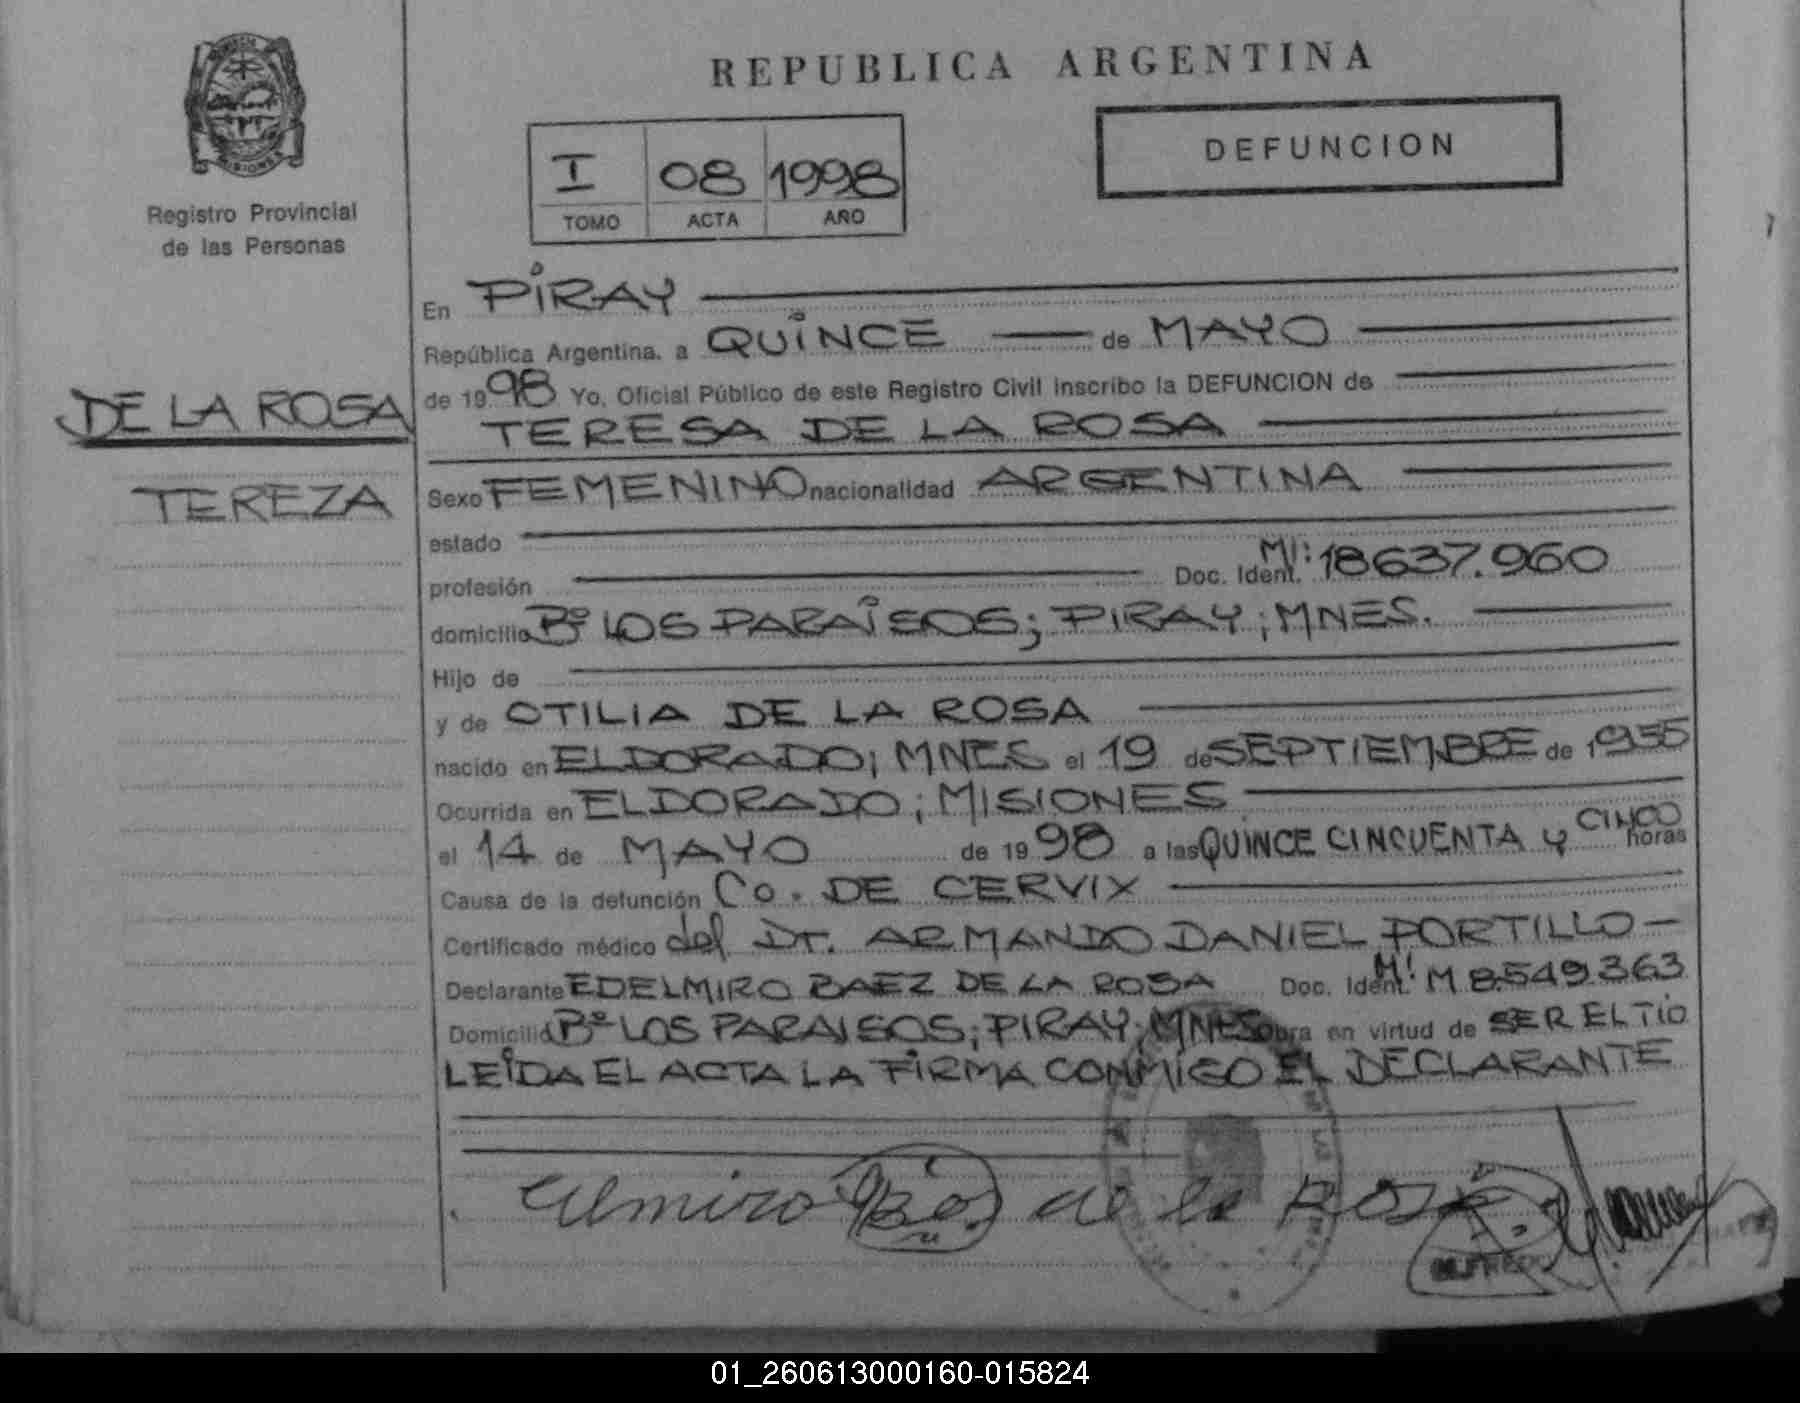 REPUBLICA ARGENTINA
DEFUNCION
I 08 1998
TOMO ACTA AÑO
MISIONES
Registro Provincial
de las Personas
DE LA ROSA
TEREZA
En PIRAY
República Argentina, a QUINCE de MAYO
de 1998 Yo, Oficial Público de este Registro Civil inscribo la DEFUNCION de
TERESA DE LA ROSA
Sexo FEMENINO nacionalidad ARGENTINA
estado
profesión Doc. Ident. MI: 18637.960
domicilio Bº LOS PARAISOS; PIRAY; MNES.
Hijo de
y de OTILIA DE LA ROSA
nacido en ELDORADO; MNES el 19 de SEPTIEMBRE de 1955
Ocurrida en ELDORADO; MISIONES
el 14 de MAYO de 1998 a las QUINCE CINCUENTA y CINCO horas
Causa de la defunción Co. DE CERVIX
Certificado médico del Dr. ARMANDO DANIEL PORTILLO
Declarante EDELMIRO BAEZ DE LA ROSA Doc. Ident. MI M 8.549.363
Domicilio Bº LOS PARAISOS; PIRAY; MNES obra en virtud de SER EL TIO
LEIDA EL ACTA LA FIRMA CONMIGO EL DECLARANTE
de la Rosa
01_260613000160-015824